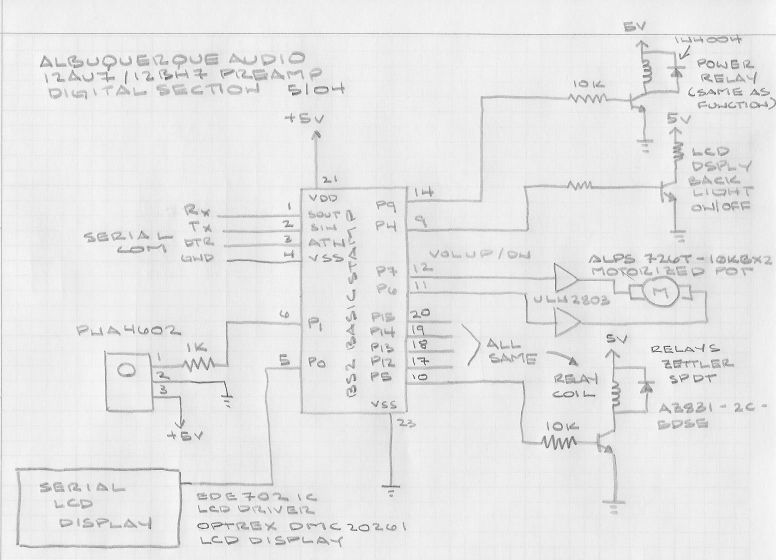 ALBUQUERQUE AUDIO
12AU7/12BH7 PREAMP
DIGITAL SECTION 5/04
+5V
21
VDD
5V
1N4004
10K
POWER
RELAY
(SAME AS
FUNCTION)
5V
LCD
DSPLY
BACK
LIGHT
ON/OFF
SERIAL
COM
RX
TX
DTR
GND
1
2
3
4
SOUT
SIN
ATN
VSS
BS2 BASIC STAMP
P9
14
P4
9
VOLUP/DN
P7
12
P6
11
ULN2803
ALPS 726T-10KBX2
MOTORIZED POT
M
PNA4602
1
2
3
1K
+5V
6
P1
5
P0
P15
20
P14
19
P13
18
P12
17
P5
10
ALL
SAME
VSS
23
5V
RELAY
COIL
RELAYS
ZETTLER
SPDT
AZ831-2C-
5DSE
10K
SERIAL
LCD
DISPLAY
EDE702 IC
LCD DRIVER
OPTREX DMC20261
LCD DISPLAY